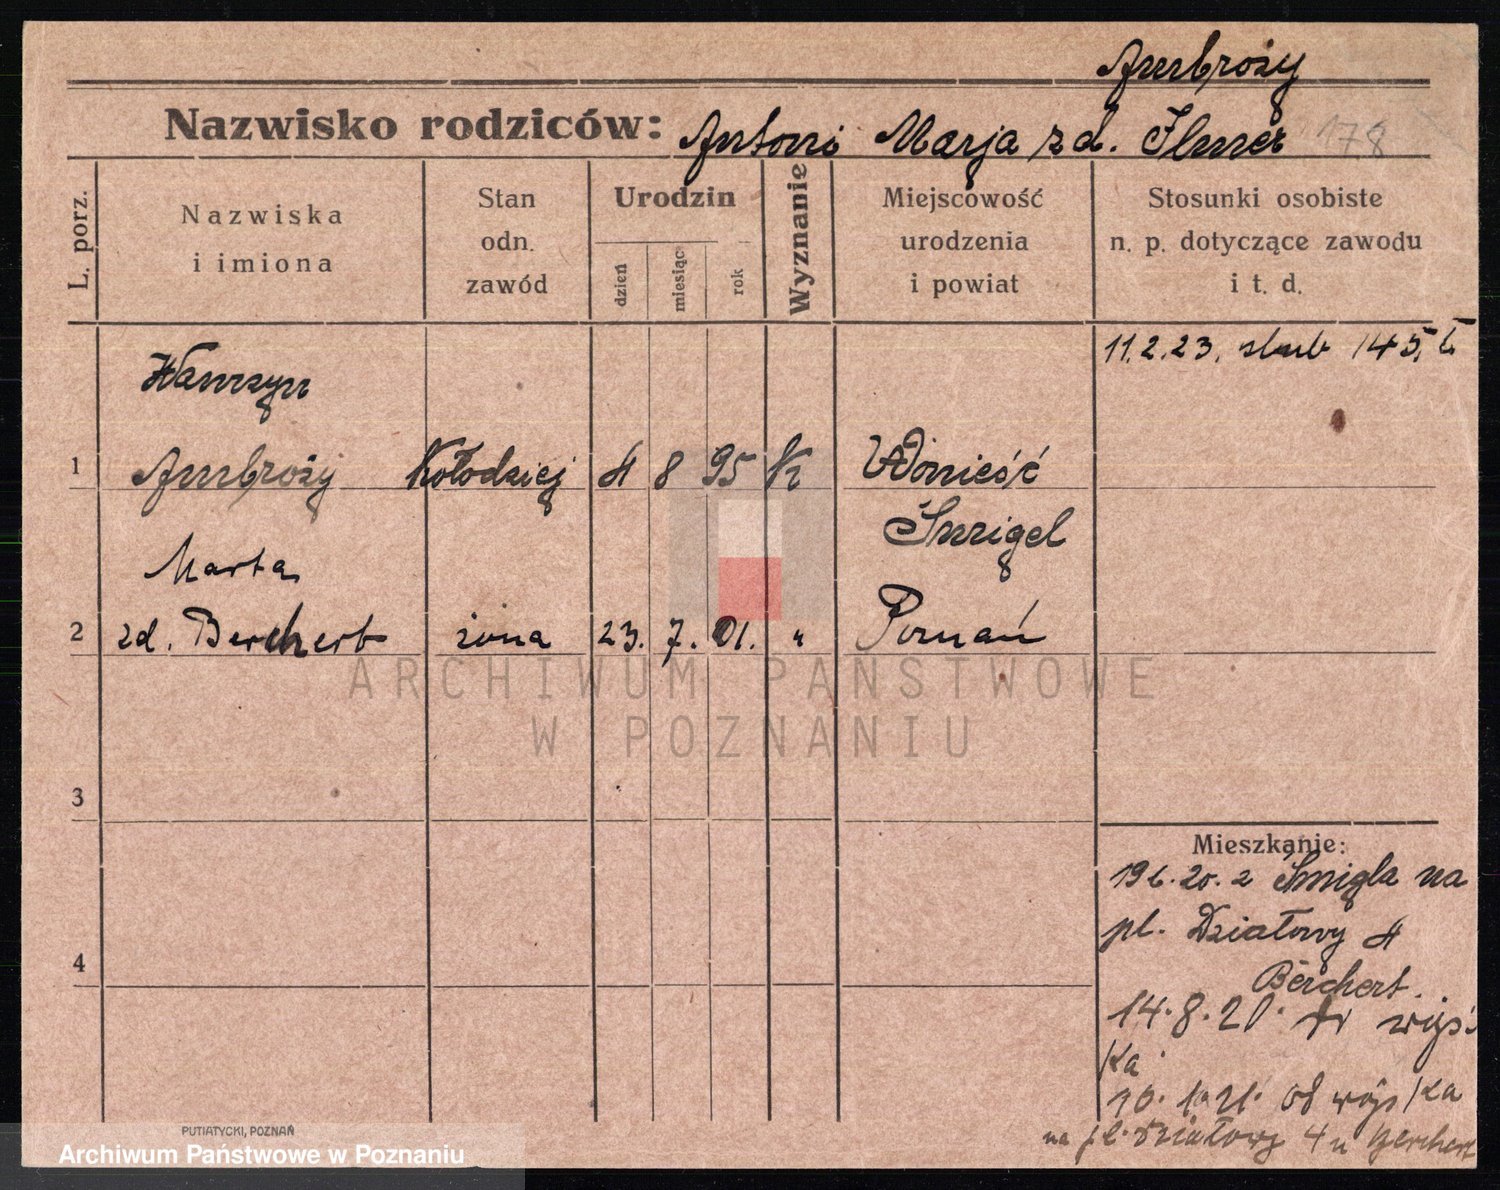 Ambroży
Nazwisko rodziców: Antoni Marja zd. Ilmer 178
L. porz.
Nazwiska
i imiona
Stan
odn.
zawód
Urodzin
dzień
miesiąc
rok
Wyznanie
Miejscowość
urodzenia
i powiat
Stosunki osobiste
n. p. dotyczące zawodu
i t. d.
11.2.23. slub 145,
Wawrzyn
1 Ambroży Kołodziej 4 8 95 K Wonieść
Śmigel
Marta
2 zd. Berchert żona 23. 7. 01. " Poznań
3
Mieszkanie:
20. z Śmigla na
pl. Działowy 4
4
Berchert.
14.8.20. do wojs-
ka
10. 21. od wojska
na pl. Działowy 4 u Berchert
PUTIATYCKI, POZNAŃ
ARCHIWUM PAŃSTWOWE
W POZNANIU
Archiwum Państwowe w Poznaniu